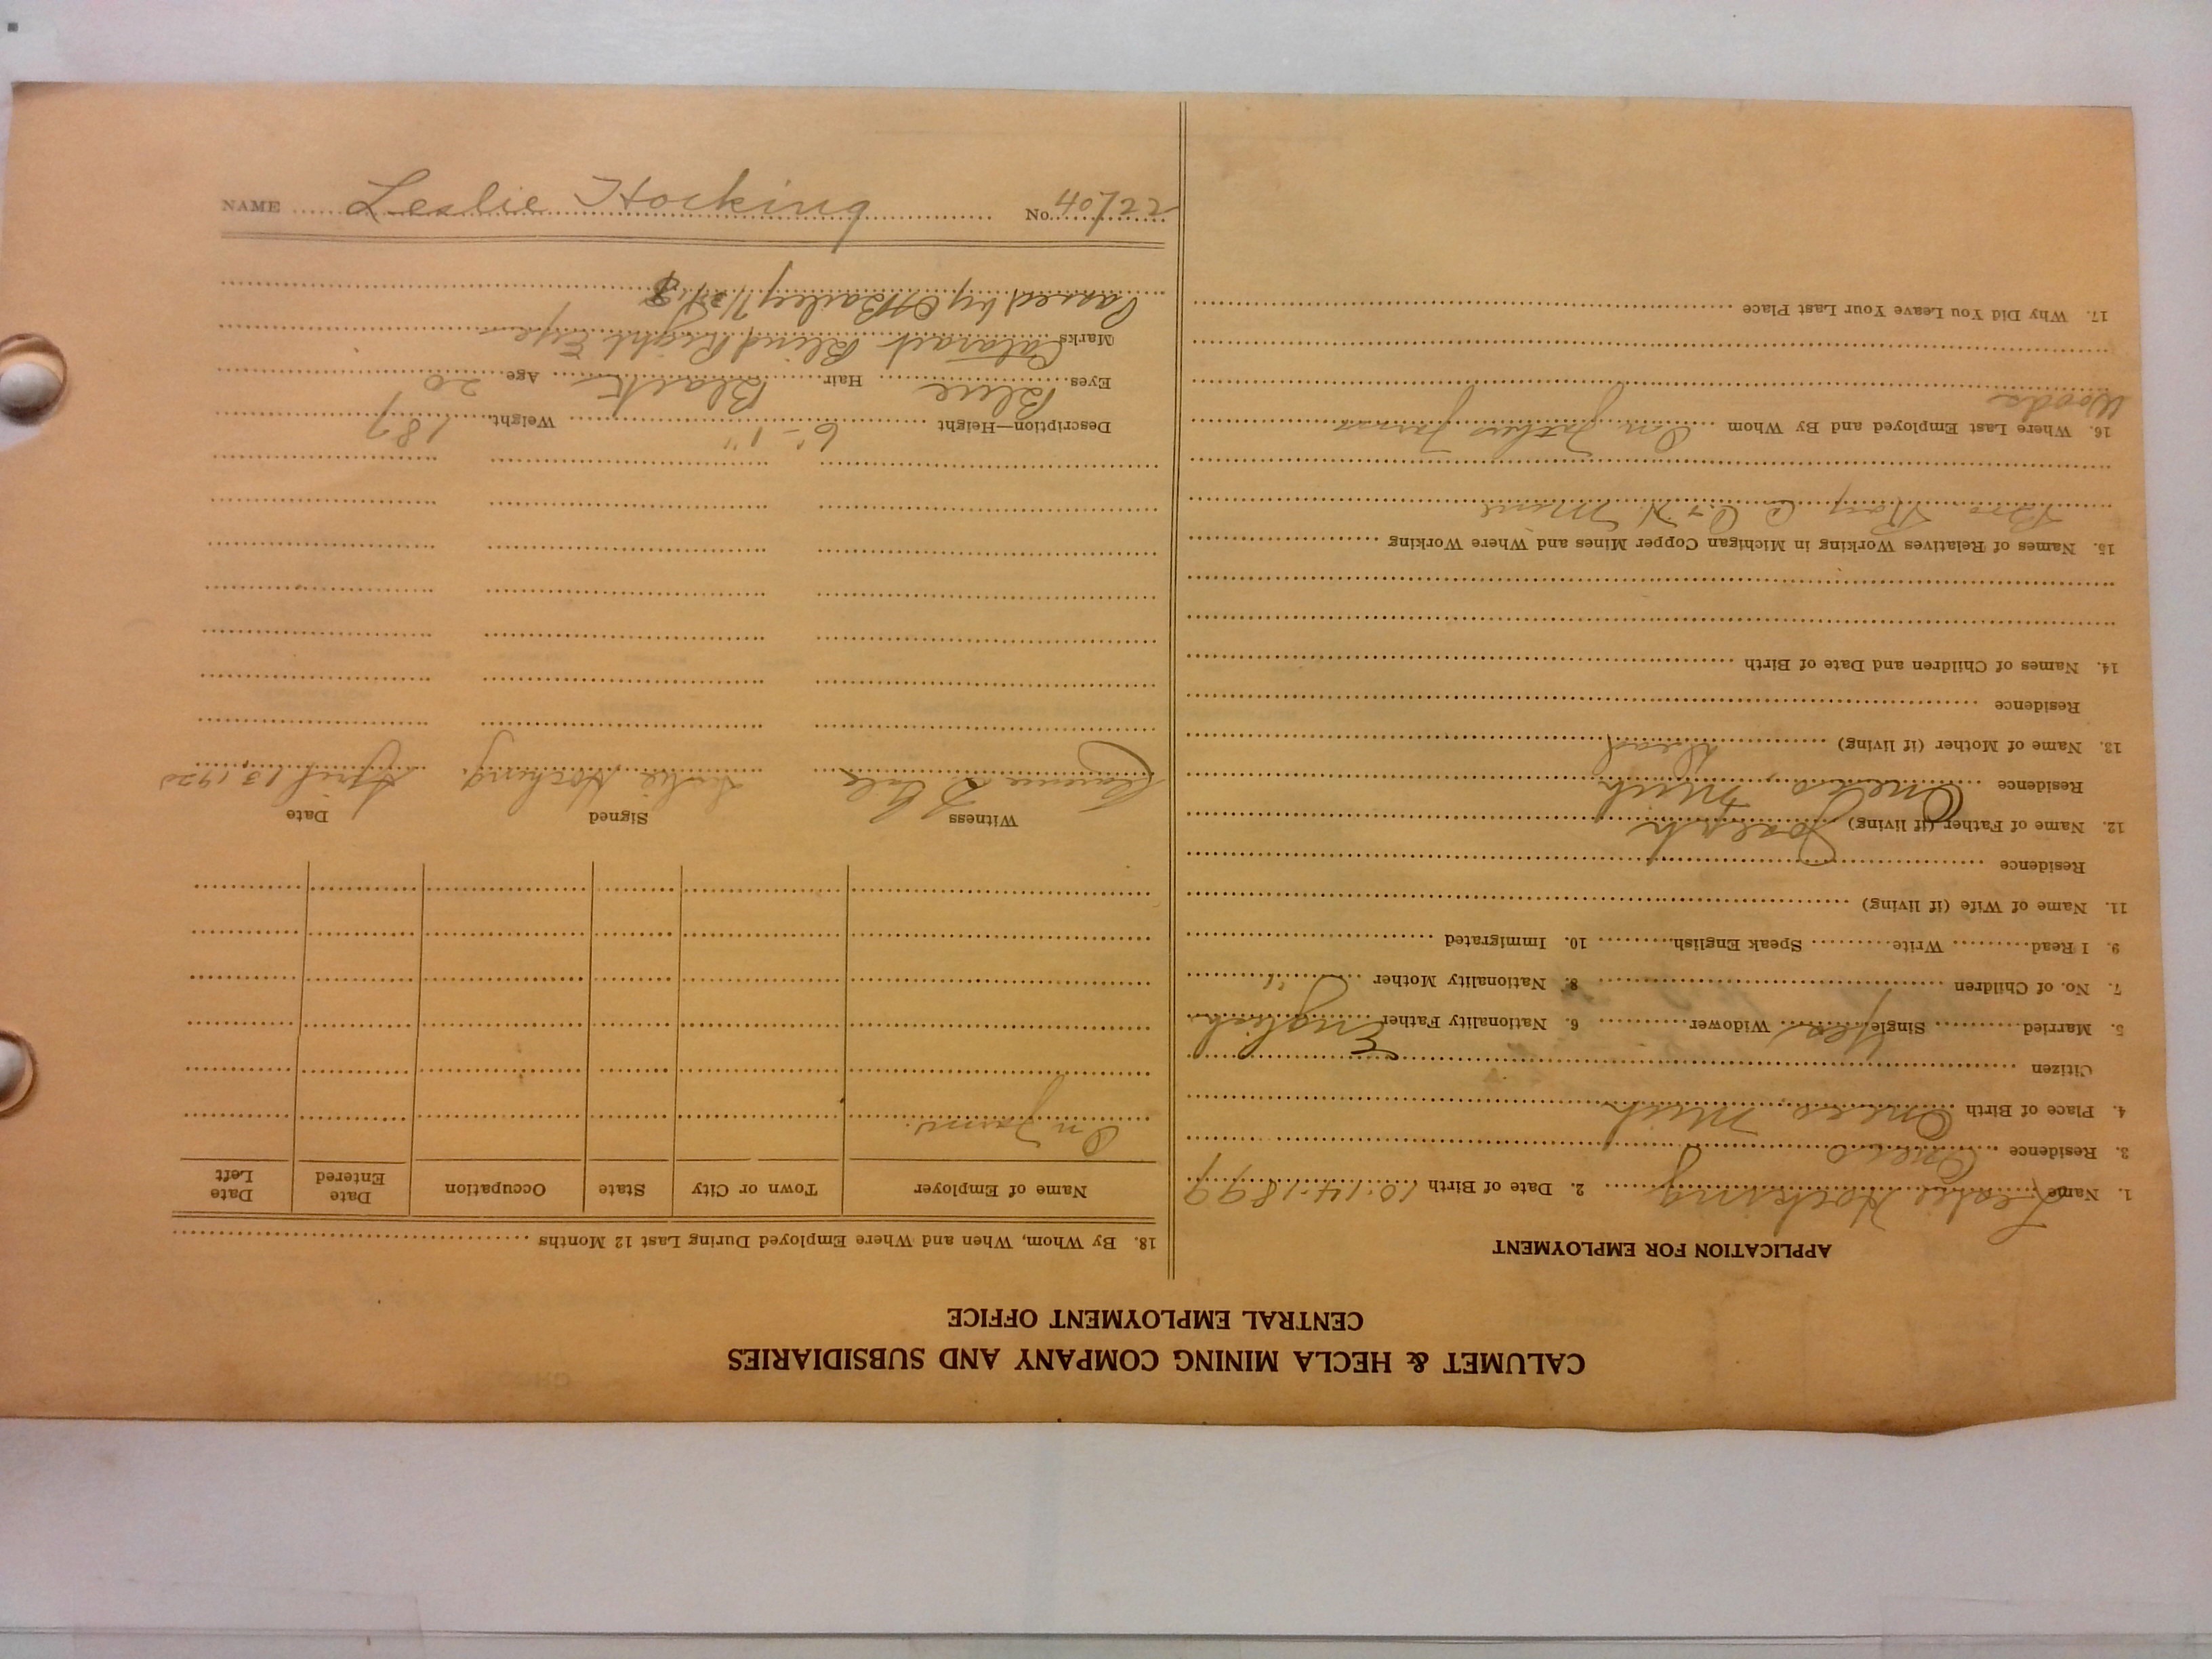 CALUMET & HECLA MINING COMPANY AND SUBSIDIARIES
CENTRAL EMPLOYMENT OFFICE
APPLICATION FOR EMPLOYMENT
1. Name Leslie Hocking 2. Date of Birth 10-14-1899
3. Residence Oneco
4. Place of Birth Oneco, Mich
Citizen
5. Married Single Yes Widower 6. Nationality Father English
7. No. of Children 8. Nationality Mother "
9. I Read Write Speak English 10. Immigrated
11. Name of Wife (if living)
Residence
12. Name of Father (if living) Joseph
Residence Oneco, Mich
13. Name of Mother (if living) Dead
Residence
14. Names of Children and Date of Birth
15. Names of Relatives Working in Michigan Copper Mines and Where Working
Bro. C & H Mine
16. Where Last Employed and By Whom On Father Farm
Woods
17. Why Did You Leave Your Last Place
18. By Whom, When and Where Employed During Last 12 Months
Name of Employer Town or City State Occupation Date Entered Date Left
On Farm.
Witness Signed Date
Clarence Leslie Hocking. April 13, 1920
Description—Height 6'-1" Weight 187
Eyes Blue Hair Black Age 20
Marks Cataract Blind Right Eye
Passed by Bailey
NAME Leslie Hocking No. 40722